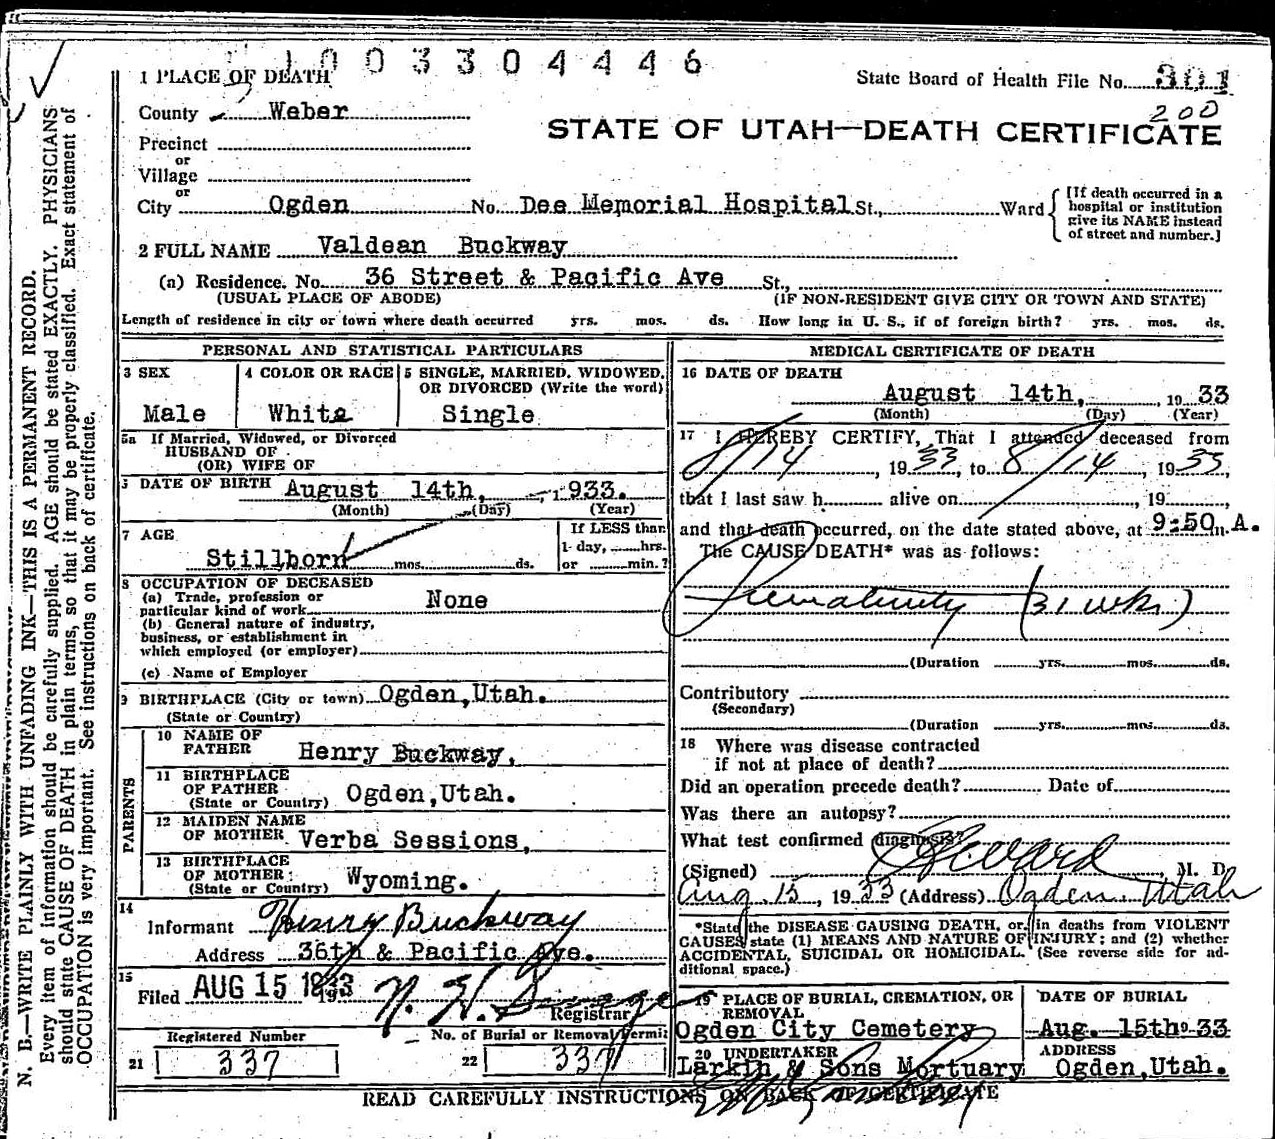 1003304446
1 PLACE OF DEATH
State Board of Health File No. 301
County Weber
200
STATE OF UTAH—DEATH CERTIFICATE
Precinct
or
Village
or
City Ogden No. Dee Memorial Hospital St., Ward
[If death occurred in a
hospital or institution
give its NAME instead
of street and number.]
2 FULL NAME Valdean Buckway
(a) Residence. No. 36 Street & Pacific Ave St.,
(USUAL PLACE OF ABODE) (IF NON-RESIDENT GIVE CITY OR TOWN AND STATE)
Length of residence in city or town where death occurred yrs. mos. ds. How long in U. S., if of foreign birth? yrs. mos. ds.
PERSONAL AND STATISTICAL PARTICULARS
3 SEX
Male
4 COLOR OR RACE
White
5 SINGLE, MARRIED, WIDOWED,
OR DIVORCED (Write the word)
Single
5a If Married, Widowed, or Divorced
HUSBAND OF
(OR) WIFE OF
DATE OF BIRTH August 14th, 1933.
(Month) (Day) (Year)
7 AGE
Stillborn mos. ds.
If LESS than
1 day, hrs.
or min.?
8 OCCUPATION OF DECEASED
(a) Trade, profession or
particular kind of work None
(b) General nature of industry,
business, or establishment in
which employed (or employer)
(c) Name of Employer
9 BIRTHPLACE (City or town) Ogden,Utah.
(State or Country)
PARENTS
10 NAME OF
FATHER Henry Buckway,
11 BIRTHPLACE
OF FATHER
(State or Country) Ogden,Utah.
12 MAIDEN NAME
OF MOTHER Verba Sessions,
13 BIRTHPLACE
OF MOTHER
(State or Country) Wyoming.
14
Informant Henry Buckway
Address 36th & Pacific Ave.
15
Filed AUG 15 1933
Registrar
Registered Number
21 337
No. of Burial or Removal Permit
22 337
MEDICAL CERTIFICATE OF DEATH
16 DATE OF DEATH
August 14th, 1933
(Month) (Day) (Year)
17 I HEREBY CERTIFY, That I attended deceased from
8/14, 1933, to 8/14, 1933,
that I last saw h alive on 19
and that death occurred, on the date stated above, at 9:50 m. A.
The CAUSE DEATH* was as follows:
Prematurity (31 wks)
(Duration yrs. mos. ds.
Contributory
(Secondary)
(Duration yrs. mos. ds.
18 Where was disease contracted
if not at place of death?
Did an operation precede death? Date of
Was there an autopsy?
What test confirmed diagnosis?
(Signed) M. D.
Aug 15, 1933 (Address) Ogden Utah
*State the DISEASE CAUSING DEATH, or in deaths from VIOLENT
CAUSES state (1) MEANS AND NATURE OF INJURY; and (2) whether
ACCIDENTAL, SUICIDAL OR HOMICIDAL. (See reverse side for ad-
ditional space.)
19 PLACE OF BURIAL, CREMATION, OR
REMOVAL
Ogden City Cemetery
DATE OF BURIAL
Aug. 15th 33
20 UNDERTAKER
Larkin & Sons Mortuary
ADDRESS
Ogden,Utah.
READ CAREFULLY INSTRUCTIONS ON BACK OF CERTIFICATE
N. B.—WRITE PLAINLY WITH UNFADING INK—THIS IS A PERMANENT RECORD.
Every item of information should be carefully supplied. AGE should be stated EXACTLY. PHYSICIANS
should state CAUSE OF DEATH in plain terms, so that it may be properly classified. Exact statement of
OCCUPATION is very important. See instructions on back of certificate.